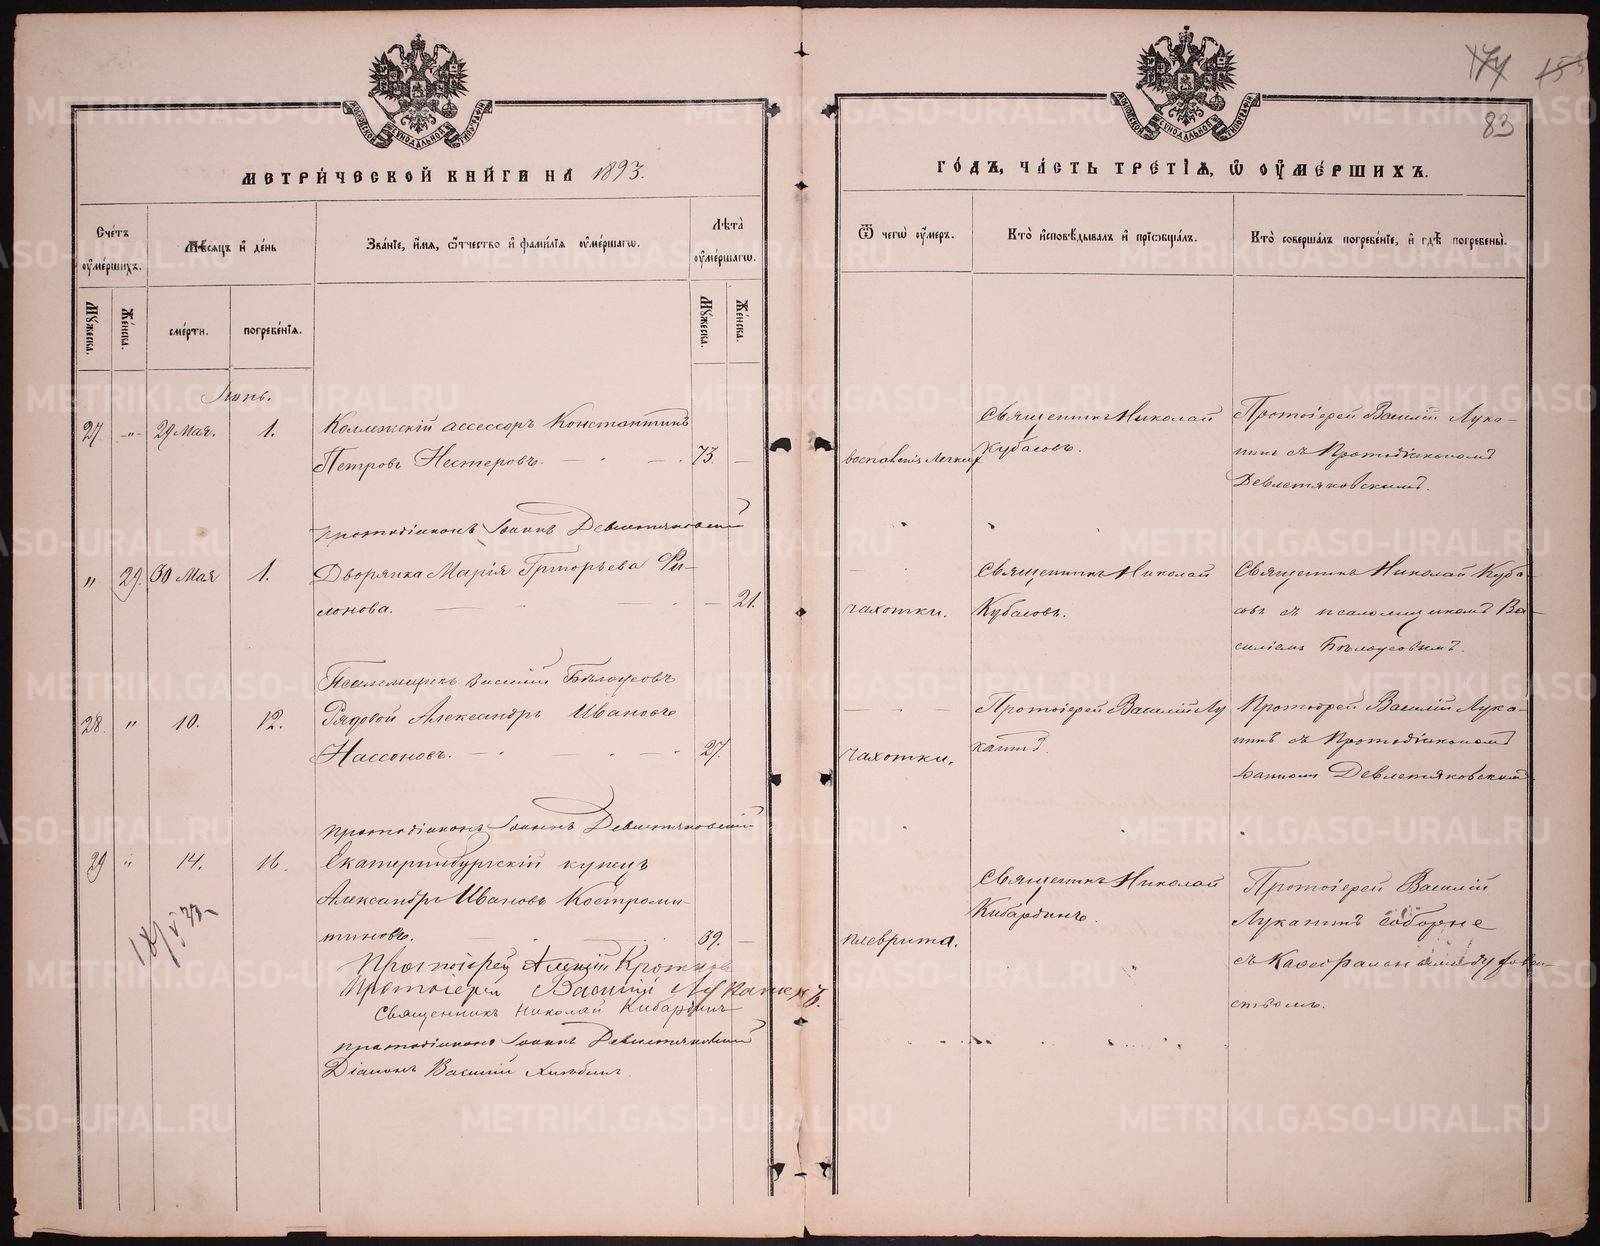 174 155
83
МЕТРИ́ЧЕСКОЙ КНИ́ГИ НА 1893.
ГО́ДЪ, ЧА́СТЬ ТРЕ́ТІЯ, Ѽ ОУ҆МЕ́РШИХЪ.
Сче́тъ оу҆ме́ршихъ.
Мѣ́сяцъ и҆ де́нь
Зва́нїе, и҆́мя, ѻ҆́тчество и҆ фами́лїѧ оу҆ме́ршагѡ.
Лѣ́та оу҆ме́ршагѡ.
Ѿ чегѡ̀ оу҆́меръ.
Кто̀ и҆сповѣ́дывалъ и҆ прїѡбща́лъ.
Кто̀ соверша́лъ погребе́нїе, и҆ гдѣ̀ погребены̀.
Мꙋ́жеска.
Же́нска.
сме́рти.
погребе́нїѧ.
Мꙋ́жеска.
Же́нска.
Іюнь.
27. -"- 29 Мая. 1. Коллежскій ассессоръ Константинъ
Петровъ Нестеровъ. 73.
воспаленія легкихъ
Священникъ Николай
Кубасовъ.
Протоіерей Василій Лука-
нинъ съ Протодіакономъ
Девлетяковскимъ.
протодіаконъ Іоаннъ Девлетяковскій
" 29. 30 Мая 1. Дворянка Марія Григорьева Фи-
лонова. 21.
чахотки.
Священникъ Николай
Кубасовъ.
Священникъ Николай Куба-
совъ съ псаломщикомъ Ва-
силіемъ Бѣлоусовымъ.
Псаломщикъ Василій Бѣлоусовъ
28. " 10. 12. Рядовой Александръ Ивановъ
Нассоновъ. 27.
чахотки.
Протоіерей Василій Лу
канинъ.
Протоіерей Василій Лука-
нинъ съ Протодіакономъ
Іоанномъ Девлетяковскимъ.
протодіаконъ Іоаннъ Девлетяковскій
29 " 14. 16. Екатеринбургскій купецъ
Александръ Ивановъ Костроми-
тиновъ. 39.
плеврита.
Священникъ Николай
Кибардинъ.
Протоіерей Василій
Луканинъ соборне
съ Кафедральнымъ духовен-
ствомъ.
Протоіерей Алексій
Протоіерей Василій Луканинъ
Священникъ Николай Кибардинъ
протодіаконъ Іоаннъ Девлетяковскій
Діаконъ Василій